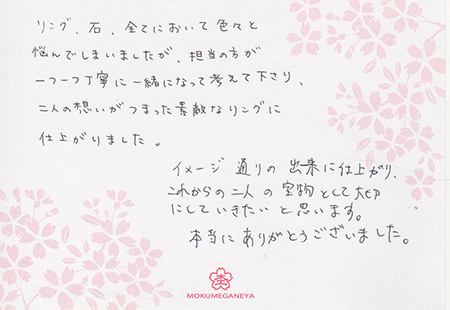 リング、石、全てにおいて色々と
悩んでしまいましたが、担当の方が
一つ一つ丁寧に一緒になって考えて下さり、
二人の想いがつまった素敵なリングに
仕上がりました。
イメージ通りの出来に仕上がり、
これからの二人の宝物として大切
にしていきたいと思います。
本当にありがとうございました。
MOKUMEGANEYA